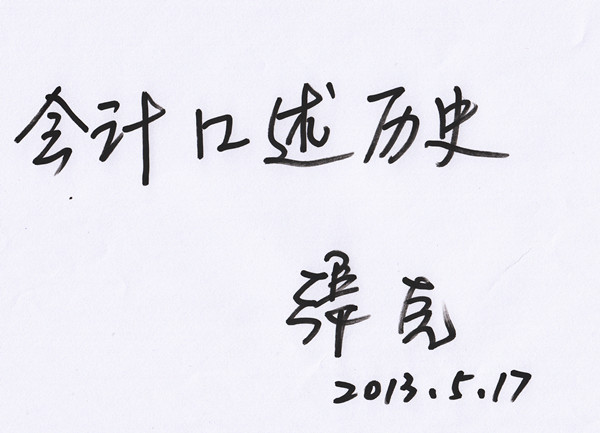 会计口述历史
張克
2013.5.17